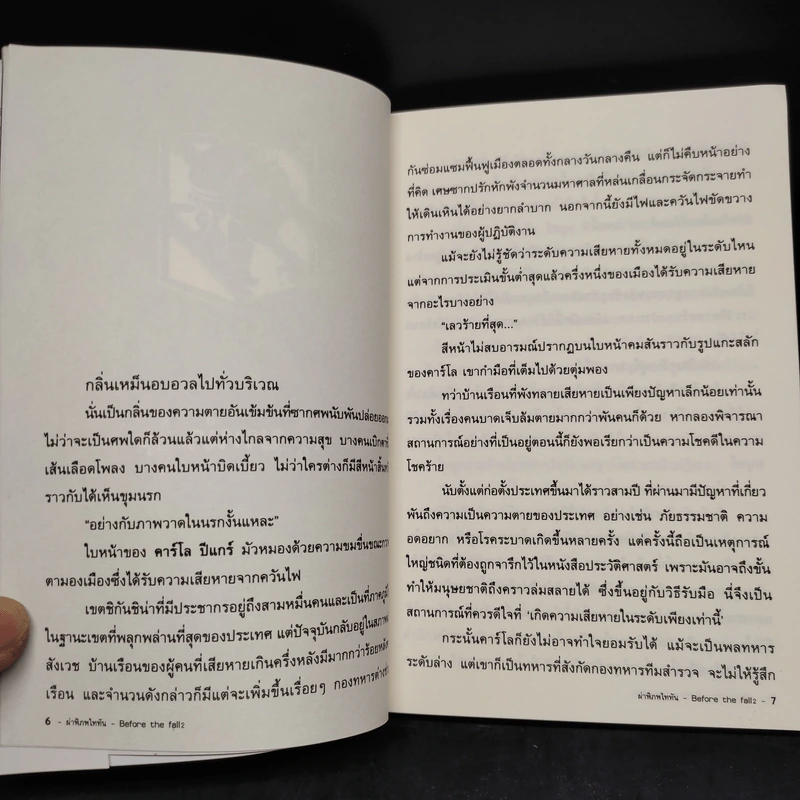 กลิ่นเหม็นอบอวลไปทั่วบริเวณ
นั่นเป็นกลิ่นของความตายอันเข้มข้นที่ซากศพนับพันปล่อยออก
ไม่ว่าจะเป็นศพใดก็ล้วนแล้วแต่ห่างไกลจากความสุข บางคนเบิกตา
เส้นเลือดโพลง บางคนใบหน้าบิดเบี้ยว ไม่ว่าใครต่างก็มีสีหน้า
ราวกับได้เห็นขุมนรก
“อย่างกับภาพวาดในนรกงั้นแหละ”
ใบหน้าของ คาร์โล ปีแกร์ มัวหมองด้วยความขมขื่นขณะ
ตามองเมืองซึ่งได้รับความเสียหายจากควันไฟ
เขตชิกันชิน่าที่มีประชากรอยู่ถึงสามหมื่นคนและเป็นที่ภาคภูมิ
ในฐานะเขตที่พลุกพล่านที่สุดของประเทศ แต่ปัจจุบันกลับอยู่ในสภาพ
สังเวช บ้านเรือนของผู้คนที่เสียหายเกินครึ่งหลังมีมากกว่าร้อยหลัง
เรือน และจำนวนดังกล่าวก็มีแต่จะเพิ่มขึ้นเรื่อยๆ กองทหารต่าง
6 - ผ่าพิภพไททัน - Before the fall2
กันซ่อมแซมฟื้นฟูเมืองตลอดทั้งกลางวันกลางคืน แต่ก็ไม่คืบหน้าอย่าง
ที่คิด เศษซากปรักหักพังจำนวนมหาศาลที่หล่นเกลื่อนกระจัดกระจายทำ
ให้เดินเหินได้อย่างยากลำบาก นอกจากนี้ยังมีไฟและควันไฟขัดขวาง
การทำงานของผู้ปฏิบัติงาน
แม้จะยังไม่รู้ชัดว่าระดับความเสียหายทั้งหมดอยู่ในระดับไหน
แต่จากการประเมินขั้นต่ำสุดแล้วครึ่งหนึ่งของเมืองได้รับความเสียหาย
จากอะไรบางอย่าง
“เลวร้ายที่สุด...”
สีหน้าไม่สบอารมณ์ปรากฏบนใบหน้าคมสันราวกับรูปแกะสลัก
ของคาร์โล เขากำมือที่เต็มไปด้วยตุ่มพอง
ทว่าบ้านเรือนที่พังทลายเสียหายเป็นเพียงปัญหาเล็กน้อยเท่านั้น
รวมทั้งเรื่องคนบาดเจ็บล้มตายมากกว่าพันคนก็ด้วย หากลองพิจารณา
สถานการณ์อย่างที่เป็นอยู่ตอนนี้ก็ยังพอเรียกว่าเป็นความโชคดีในความ
โชคร้าย
นับตั้งแต่ก่อตั้งประเทศขึ้นมาได้ราวสามปี ที่ผ่านมามีปัญหาที่เกี่ยว
พันถึงความเป็นความตายของประเทศ อย่างเช่น ภัยธรรมชาติ ความ
อดอยาก หรือโรคระบาดเกิดขึ้นหลายครั้ง แต่ครั้งนี้ถือเป็นเหตุการณ์
ใหญ่ชนิดที่ต้องถูกจารึกไว้ในหนังสือประวัติศาสตร์ เพราะมันอาจถึงขั้น
ทำให้มนุษยชาติถึงคราวล่มสลายได้ ซึ่งขึ้นอยู่กับวิธีรับมือ นี่จึงเป็น
สถานการณ์ที่ควรดีใจที่ ‘เกิดความเสียหายในระดับเพียงเท่านี้’
กระนั้นคาร์โลก็ยังไม่อาจทำใจยอมรับได้ แม้จะเป็นพลทหาร
ระดับล่าง แต่เขาก็เป็นทหารที่สังกัดกองทหารทีมสำรวจ จะไม่ให้รู้สึก
ผ่าพิภพไททัน - Before the fall2 - 7